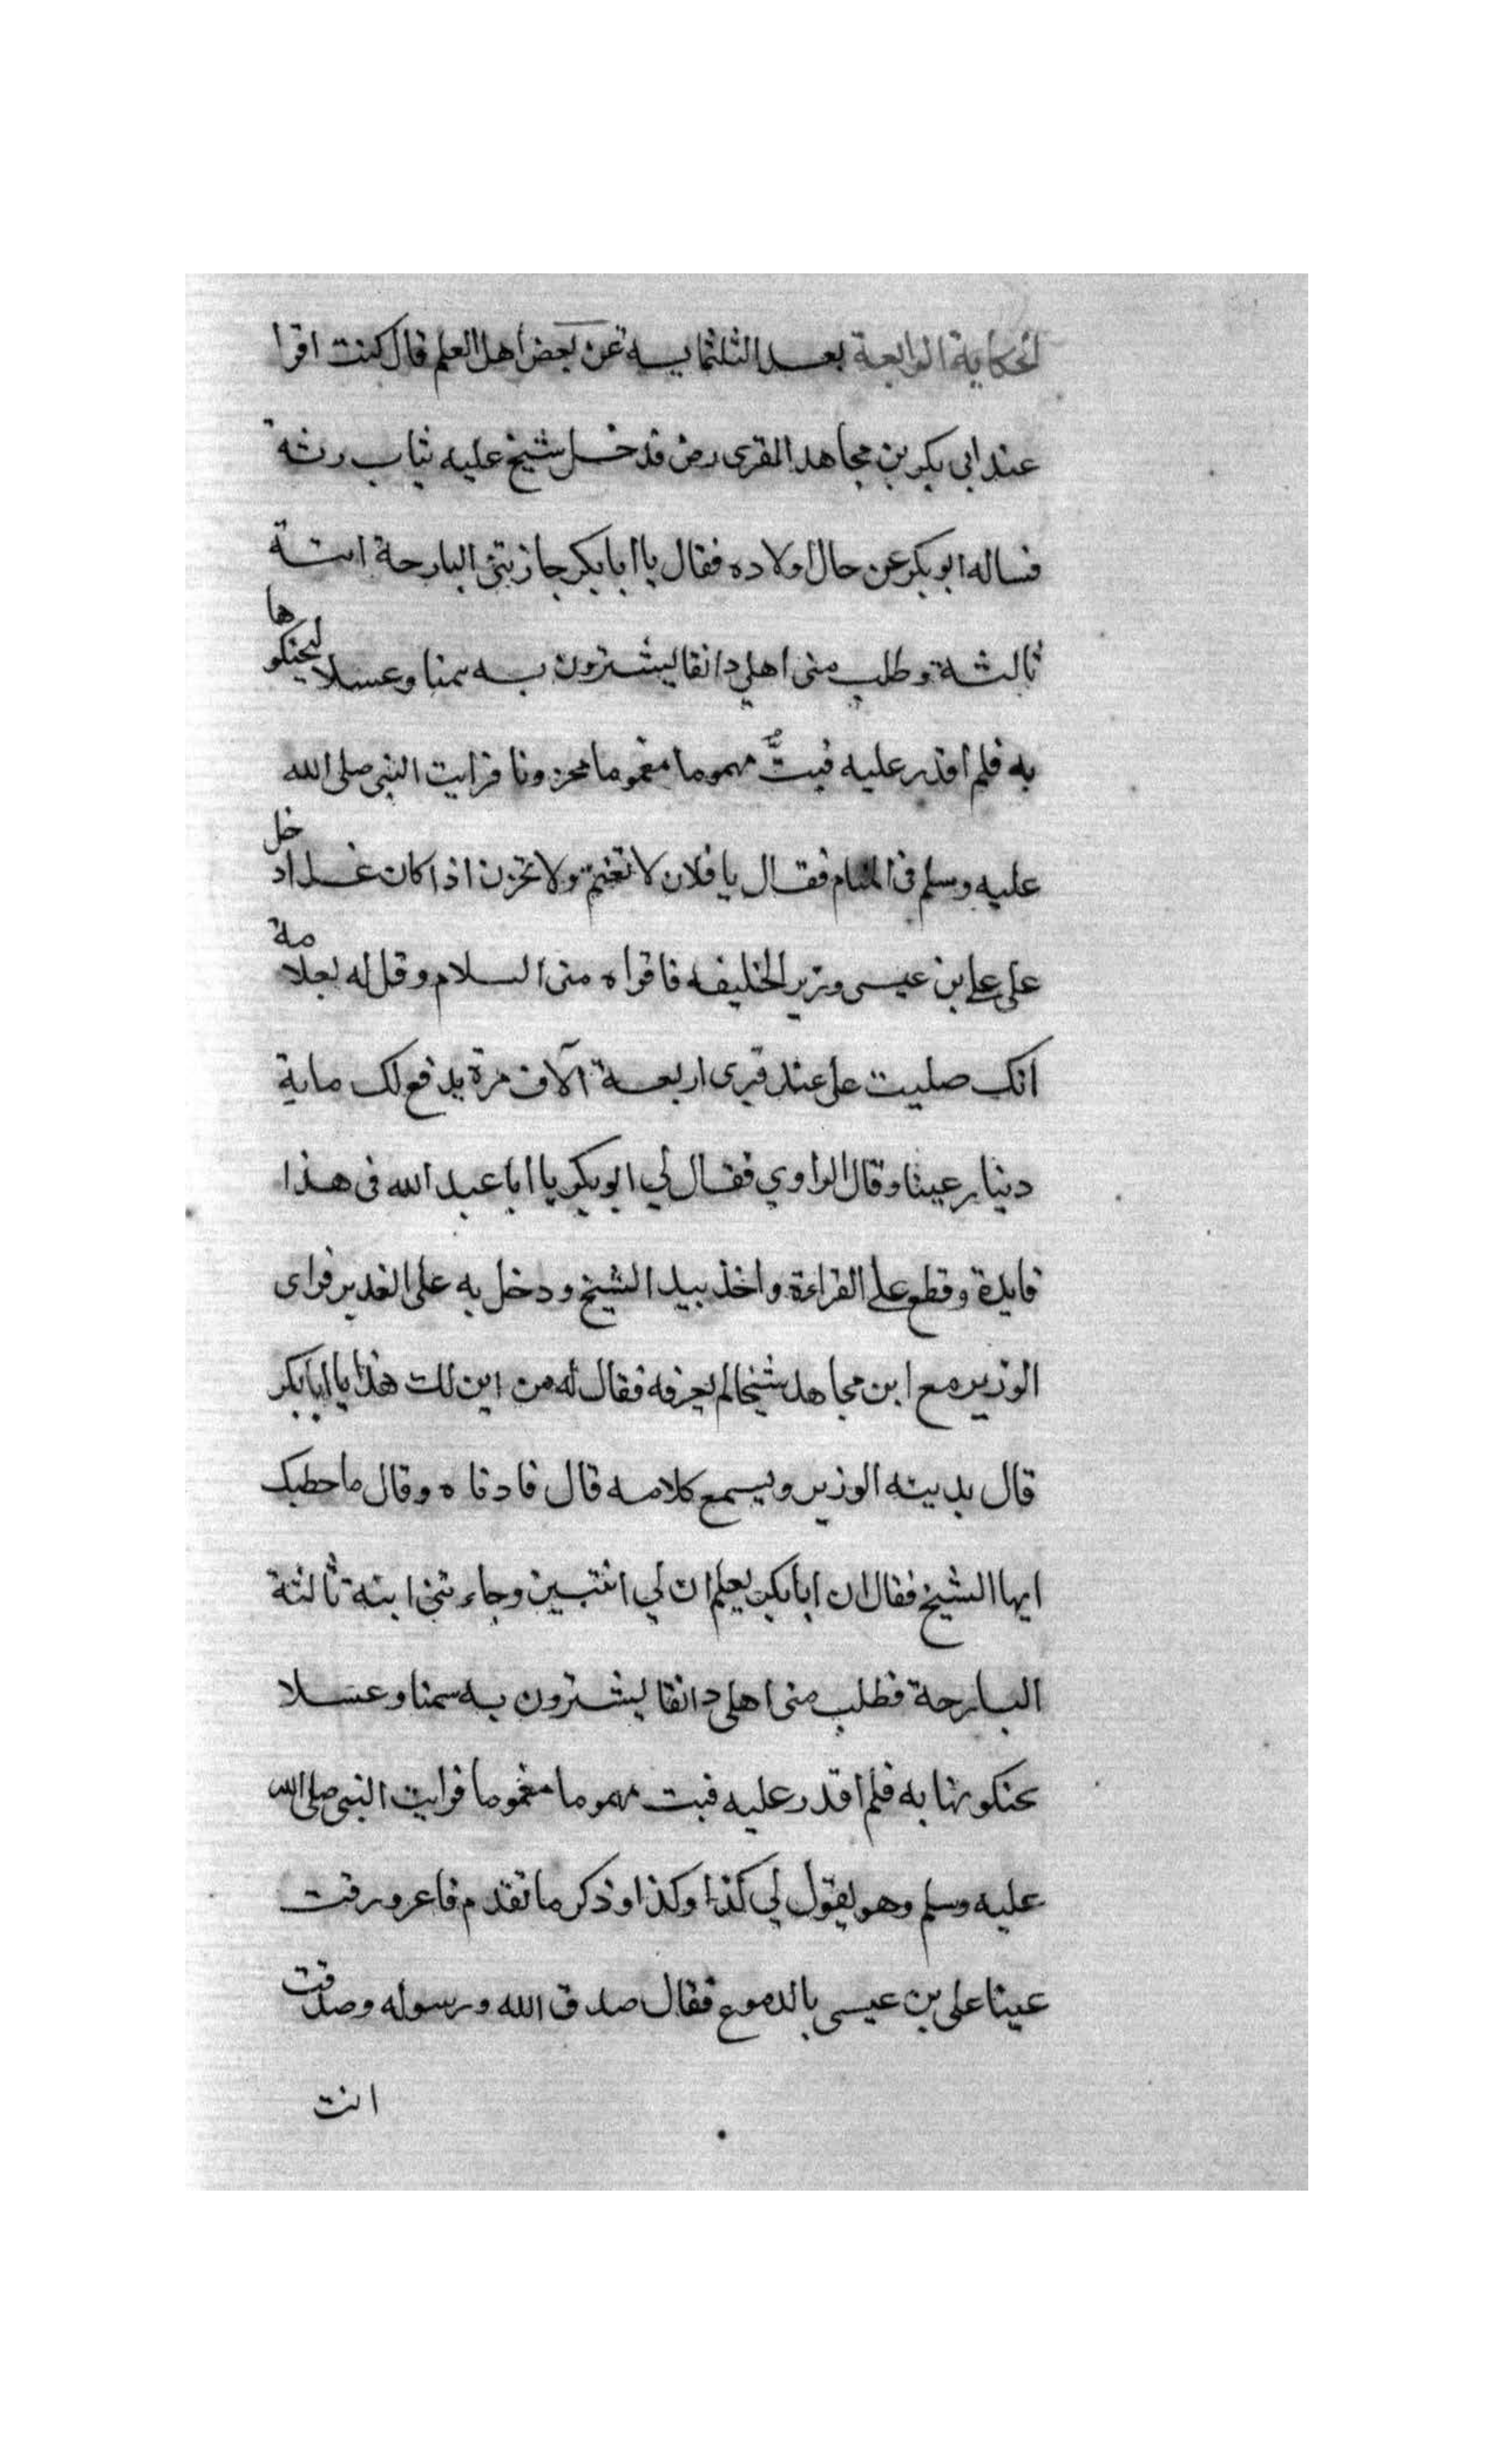 الحكاية الرابعة بعد الثلثماية عن بعض اهل العلم قال كنت اقرا
عند ابي بكر بن مجاهد المقرى رض فدخل شيخ عليه ثياب رثة
فساله ابو بكر عن حال اولاده فقال يا ابا بكر جازتنى البارحة ابنة
ثالثة وطلب منى اهلي دانقا ليشترون به سمنا وعسلا ليحنكوها
به فلم اقدر عليه فبتُّ مهموما مغموما محزونا فرايت النبى صلى الله
عليه وسلم فى المنام فقال يا فلان لا تغتم ولا تحزن اذا كان غدا ادخل
على على بن عيسى وزير الخليفه فاقراه منى السلام وقل له بعلامة
انك صليت على عند قبرى اربعة آلاف مرة يدفع لك ماية
دينار عينا وقال الراوي فقال لي ابو بكر يا ابا عبد الله فى هذا
فايدة وقطع على القراءة واخذ بيد الشيخ ودخل به على الغدير فراى
الوزير مع ابن مجاهد شيخا لم يعرفه فقال له من اين لك هذا يا ابا بكر
قال يدينه الوزير ويسمع كلامه قال فادناه وقال ما حطبك
ايها الشيخ فقال ان ابا بكر يعلم ان لي انتبين وجاءتنى ابنة ثالثة
البارحة فطلب منى اهلى دانقا ليشترون به سمنا وعسلا
يحنكونها به فلم اقدر عليه فبت مهموما مغموما فرايت النبى صلى الله
عليه وسلم وهو يقول لي كذا وكذا وذكر ما تقدم فاعرورقت
عينا على بن عيسى بالدموع فقال صدق الله ورسوله وصدقت
انت